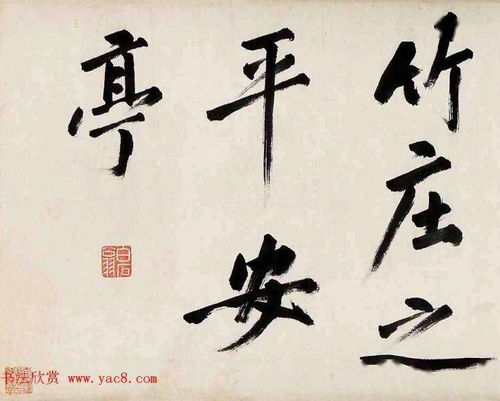 竹庄之
平安
亭
白石翁
书法欣赏 www.yac8.com